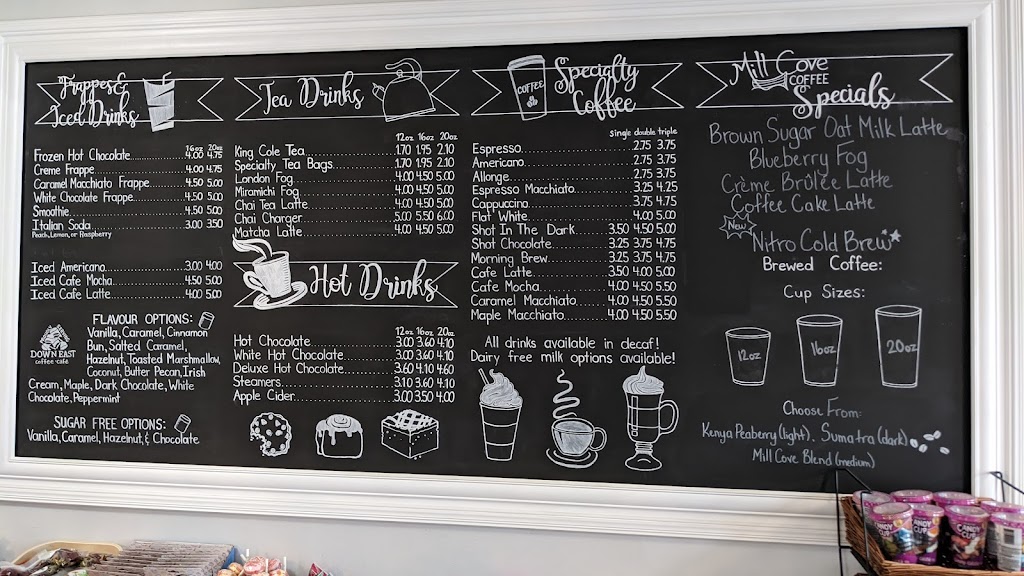 Frappes &
Iced Drinks
16oz 20oz
Frozen Hot Chocolate 4.00 4.75
Creme Frappe 4.00 4.75
Caramel Macchiato Frappe 4.50 5.00
White Chocolate Frappe 4.50 5.00
Smoothie 4.50 5.00
Italian Soda 3.00 3.50
Peach, Lemon, or Raspberry
Iced Americano 3.00 4.00
Iced Cafe Mocha 4.50 5.00
Iced Cafe Latte 4.00 5.00
FLAVOUR OPTIONS:
Vanilla, Caramel, Cinnamon
Bun, Salted Caramel,
Hazelnut, Toasted Marshmallow,
Coconut, Butter Pecan, Irish
Cream, Maple, Dark Chocolate, White
Chocolate, Peppermint
DOWN EAST
coffee café
SUGAR FREE OPTIONS:
Vanilla, Caramel, Hazelnut, & Chocolate
Tea Drinks
12oz 16oz 20oz
King Cole Tea 1.70 1.95 2.10
Specialty Tea Bags 1.70 1.95 2.10
London Fog 4.00 4.50 5.00
Miramichi Fog 4.00 4.50 5.00
Chai Tea Latte 4.00 4.50 5.00
Chai Charger 5.00 5.50 6.00
Matcha Latte 4.00 4.50 5.00
Hot Drinks
12oz 16oz 20oz
Hot Chocolate 3.00 3.60 4.10
White Hot Chocolate 3.00 3.60 4.10
Deluxe Hot Chocolate 3.60 4.10 4.60
Steamers 3.10 3.60 4.10
Apple Cider 3.00 3.50 4.00
COFFEE
Specialty
Coffee
Single double triple
Espresso 2.75 3.75
Americano 2.75 3.75
Allonge 2.75 3.75
Espresso Macchiato 3.25 4.25
Cappuccino 3.75 4.75
Flat White 4.00 5.00
Shot In The Dark 3.50 4.50 5.00
Shot Chocolate 3.25 3.75 4.75
Morning Brew 3.25 3.75 4.75
Cafe Latte 3.50 4.00 5.00
Cafe Mocha 4.00 4.50 5.50
Caramel Macchiato 4.00 4.50 5.50
Maple Macchiato 4.00 4.50 5.50
All drinks available in decaf!
Dairy free milk options available!
Mill Cove
COFFEE
Specials
Brown Sugar Oat Milk Latte
Blueberry Fog
Crème Brûlée Latte
Coffee Cake Latte
New
Nitro Cold Brew
Brewed Coffee:
Cup Sizes:
12oz 16oz 20oz
Choose From:
Kenya Peaberry (light), Sumatra (dark)
Mill Cove Blend (medium)